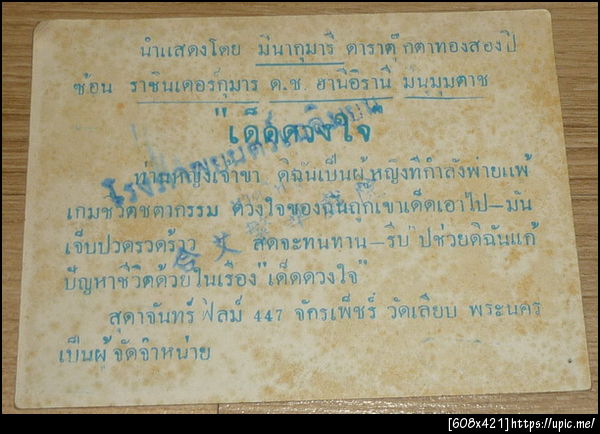 นำแสดงโดย มีนากุมารี ดาราตุ๊กตาทองสองปี
ซ้อน ราชินเดอร์กุมาร ด.ช. ฮานีอิรานี มันมุมตาช
"เด็ดดวงใจ"
ท่านหญิงเจ้าขา ดิฉันเป็นผู้หญิงที่กำลังพ่ายแพ้
เกมชีวิตชตากรรม ดวงใจของฉันถูกเขาเด็ดเอาไป-มัน
เจ็บปวดรวดร้าว สุดจะทนทาน-รีบไปช่วยดิฉันแก้
ปัญหาชีวิตด้วยในเรื่อง "เด็ดดวงใจ"
สุดาจันทร์ ฟิล์ม 447 จักรเพ็ชร์ วัดเลียบ พระนคร
เป็นผู้จัดจำหน่าย
[608x421] https://upic.me/